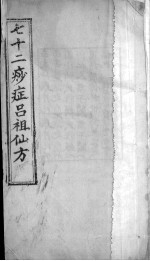 七十二痧症呂祖仙方